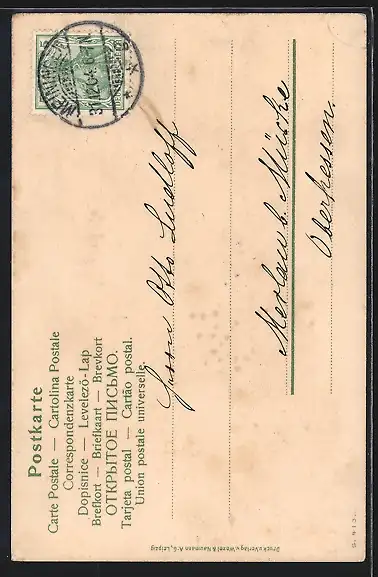 Postkarte
Carte Postale — Cartolina Postale
Correspondenzkarte
Dopisnice — Levelező-Lap
Brefkort — Briefkaart — Brevkort
ОТКРЫТОЕ ПИСЬМО.
Tarjeta postal — Cartão postal.
Union postale universelle.
31.12.04. 6-7 N.
Herrn Otto Ludloff
Merlau b. Mücke
Oberhessen.
Druck u. Verlag v. Wezel & Naumann A.-G., Leipzig